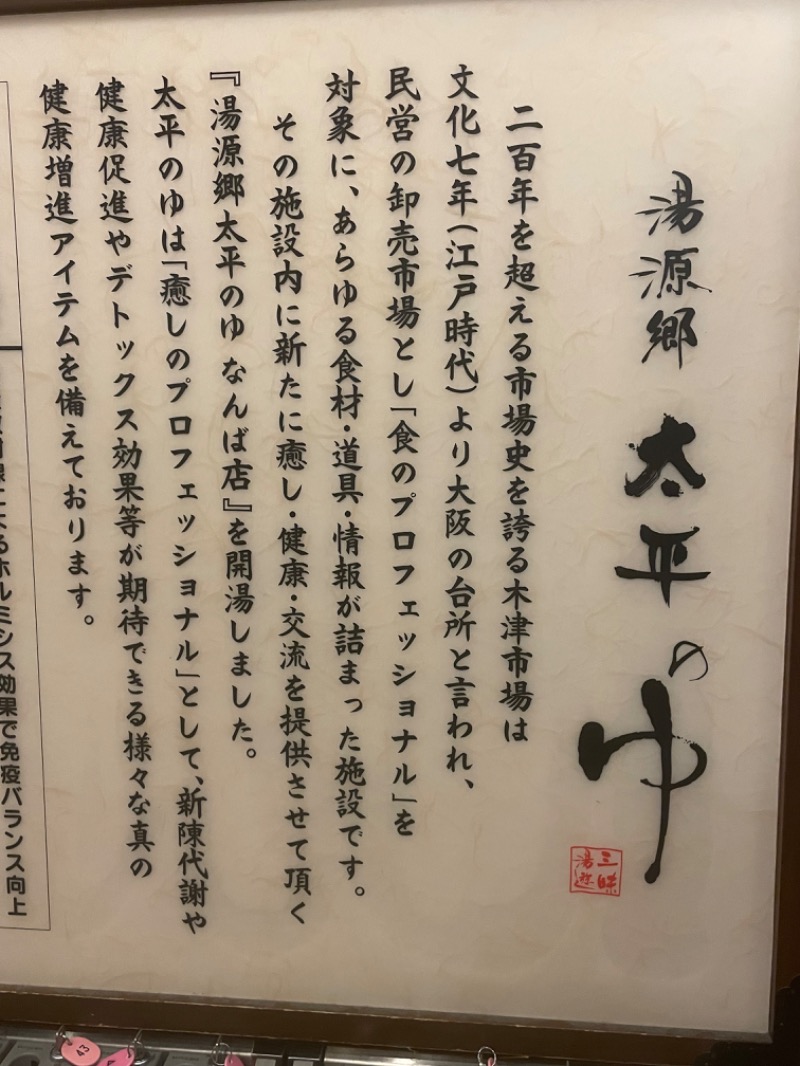 湯源郷 太平のゆ
二百年を超える市場史を誇る木津市場は
文化七年(江戸時代)より大阪の台所と言われ、
民営の卸売市場とし「食のプロフェッショナル」を
対象に、あらゆる食材・道具・情報が詰まった施設です。
その施設内に新たに癒し・健康・交流を提供させて頂く
『湯源郷太平のゆ なんば店』を開湯しました。
太平のゆは「癒しのプロフェッショナル」として、新陳代謝や
健康促進やデトックス効果等が期待できる様々な真の
健康増進アイテムを備えております。
によるホルミシス効果で免疫バランス向上
43